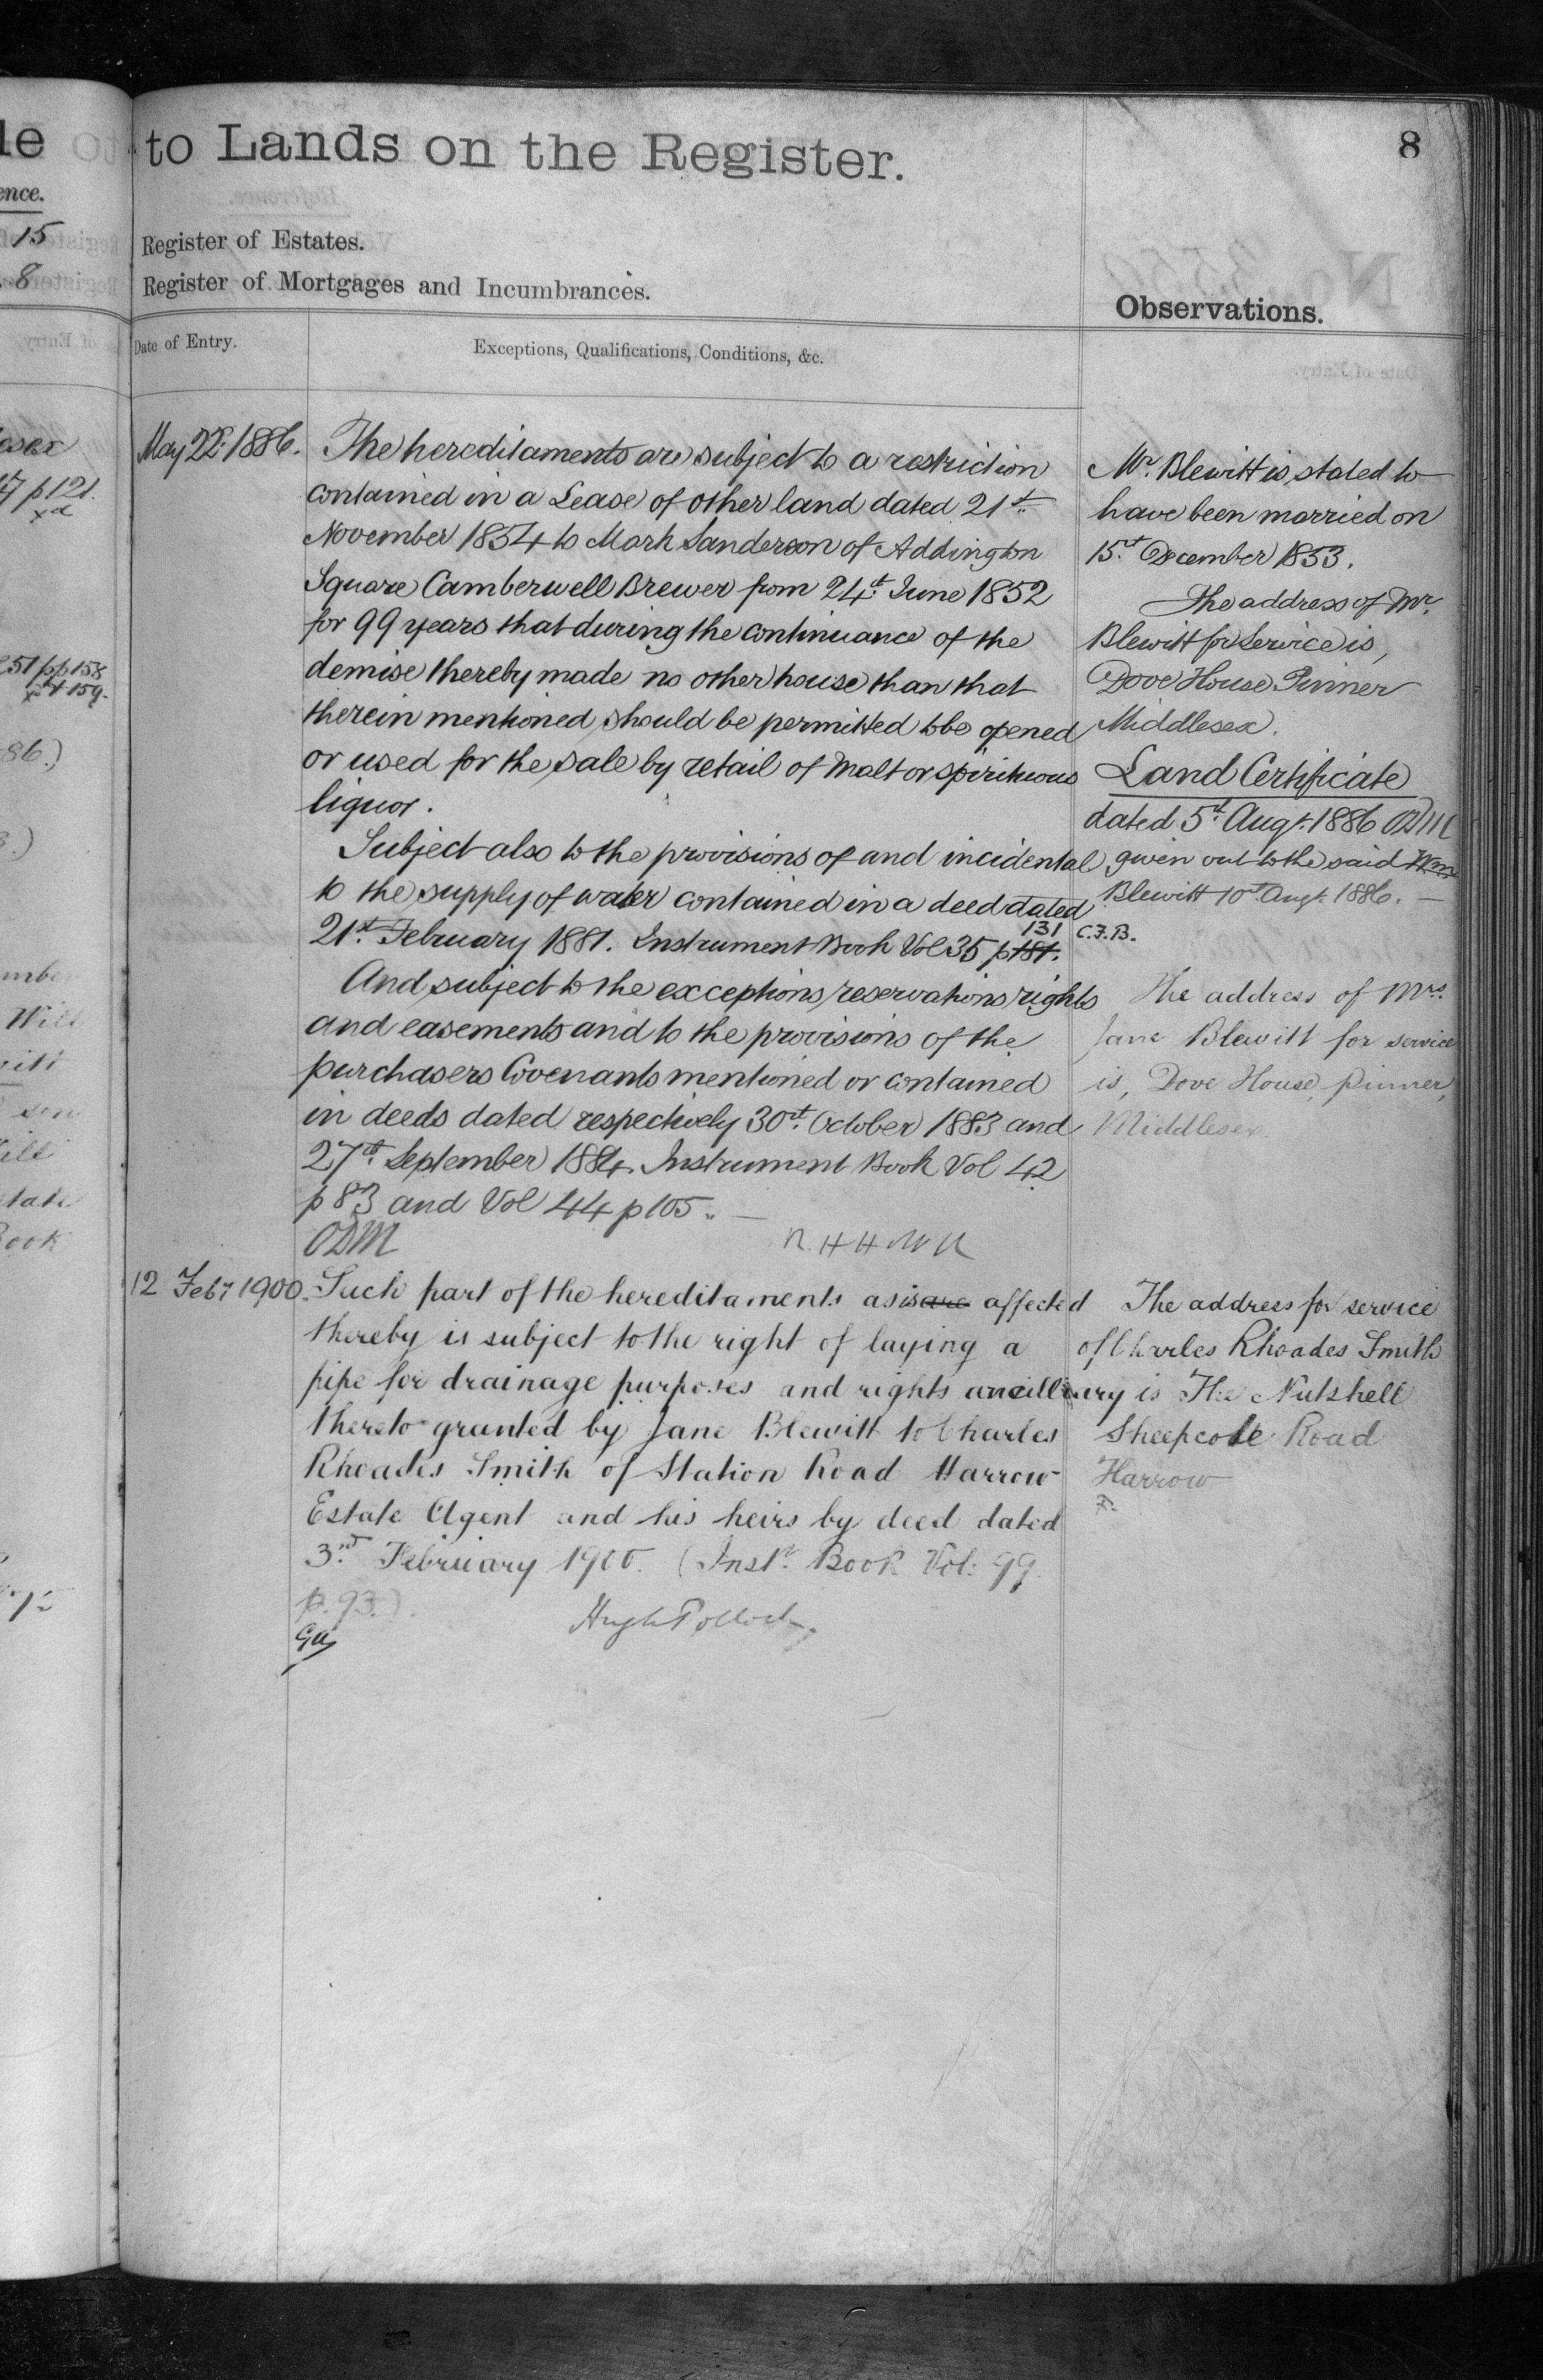 to Lands on the Register.
8
Register of Estates.
Register of Mortgages and Incumbrances.
Observations.
Date of Entry.
Exceptions, Qualifications, Conditions, &c.
May 22d. 1886.
The hereditaments are subject to a restriction
contained in a Lease of other land dated 21st.
November 1854 to Mark Sanderson of Addington
Square Camberwell Brewer from 24th. June 1852
for 99 years that during the continuance of the
demise thereby made no other house than that
therein mentioned should be permitted to be opened
or used for the sale by retail of Malt or spirituous
liquor.
Subject also to the provisions of and incidental
to the supply of water contained in a deed dated
131
21st. February 1881. Instrument Book Vol 35 p 181.
And subject to the exceptions reservations rights
and easements and to the provisions of the
purchasers Covenants mentioned or contained
in deeds dated respectively 30th. October 1883 and
27th. September 1884. Instrument Book Vol 42
p 83 and Vol 44 p 105. —
ODM
12 Feby 1900.
Such part of the hereditaments as is are affected
thereby is subject to the right of laying a
pipe for drainage purposes and rights ancillary
thereto granted by Jane Blewitt to Charles
Rhoades Smith of Station Road Harrow
Estate Agent and his heirs by deed dated
3rd. February 1900. (Inst. Book Vol: 99.
p. 93.).
Hugh Pollock.
Mr. Blewitt is stated to
have been married on
15th. December 1853.
The address of Mr.
Blewitt for Service is,
Dove House Pinner
Middlesex.
Land Certificate
dated 5th. Augt. 1886 ODM
given out to the said Wm
Blewitt 10th Augt. 1886. —
C.F.B.
The address of Mrs.
Jane Blewitt for service
is, Dove House, Pinner,
Middlesex.
The address for service
of Charles Rhoades Smith
is The Nutshell
Sheepcote Road
Harrow
le
ence.
15
8
p 121.
51 pp 158
& 159.
86.)
Will
Book